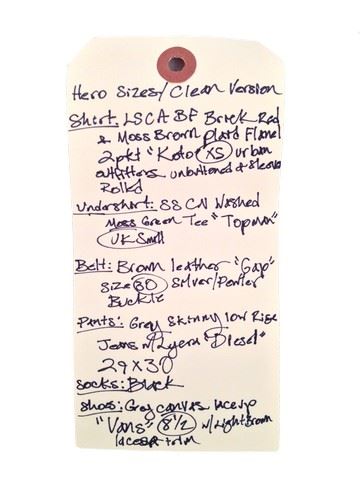 Hero Sizes/Clean Version
Shirt: LSCABF Brick Red
& Moss Brown plaid Flanel
2pkt "Koto" XS urban
outfitters unbuttoned & sleeves
Rolld
Undershirt: SS CN Washed
Moss Green Tee "Topman"
UK Small
Belt: Brown leather "Gap"
size 30 Silver/Pewter
Buckle
Pants: Grey Skinny low Rise
Jeans w/Lycra "Diesel"
29x30
Socks: Black
Shoes: Grey canvas lace up
"Vans" 8½ w/Light Brown
laces & trim